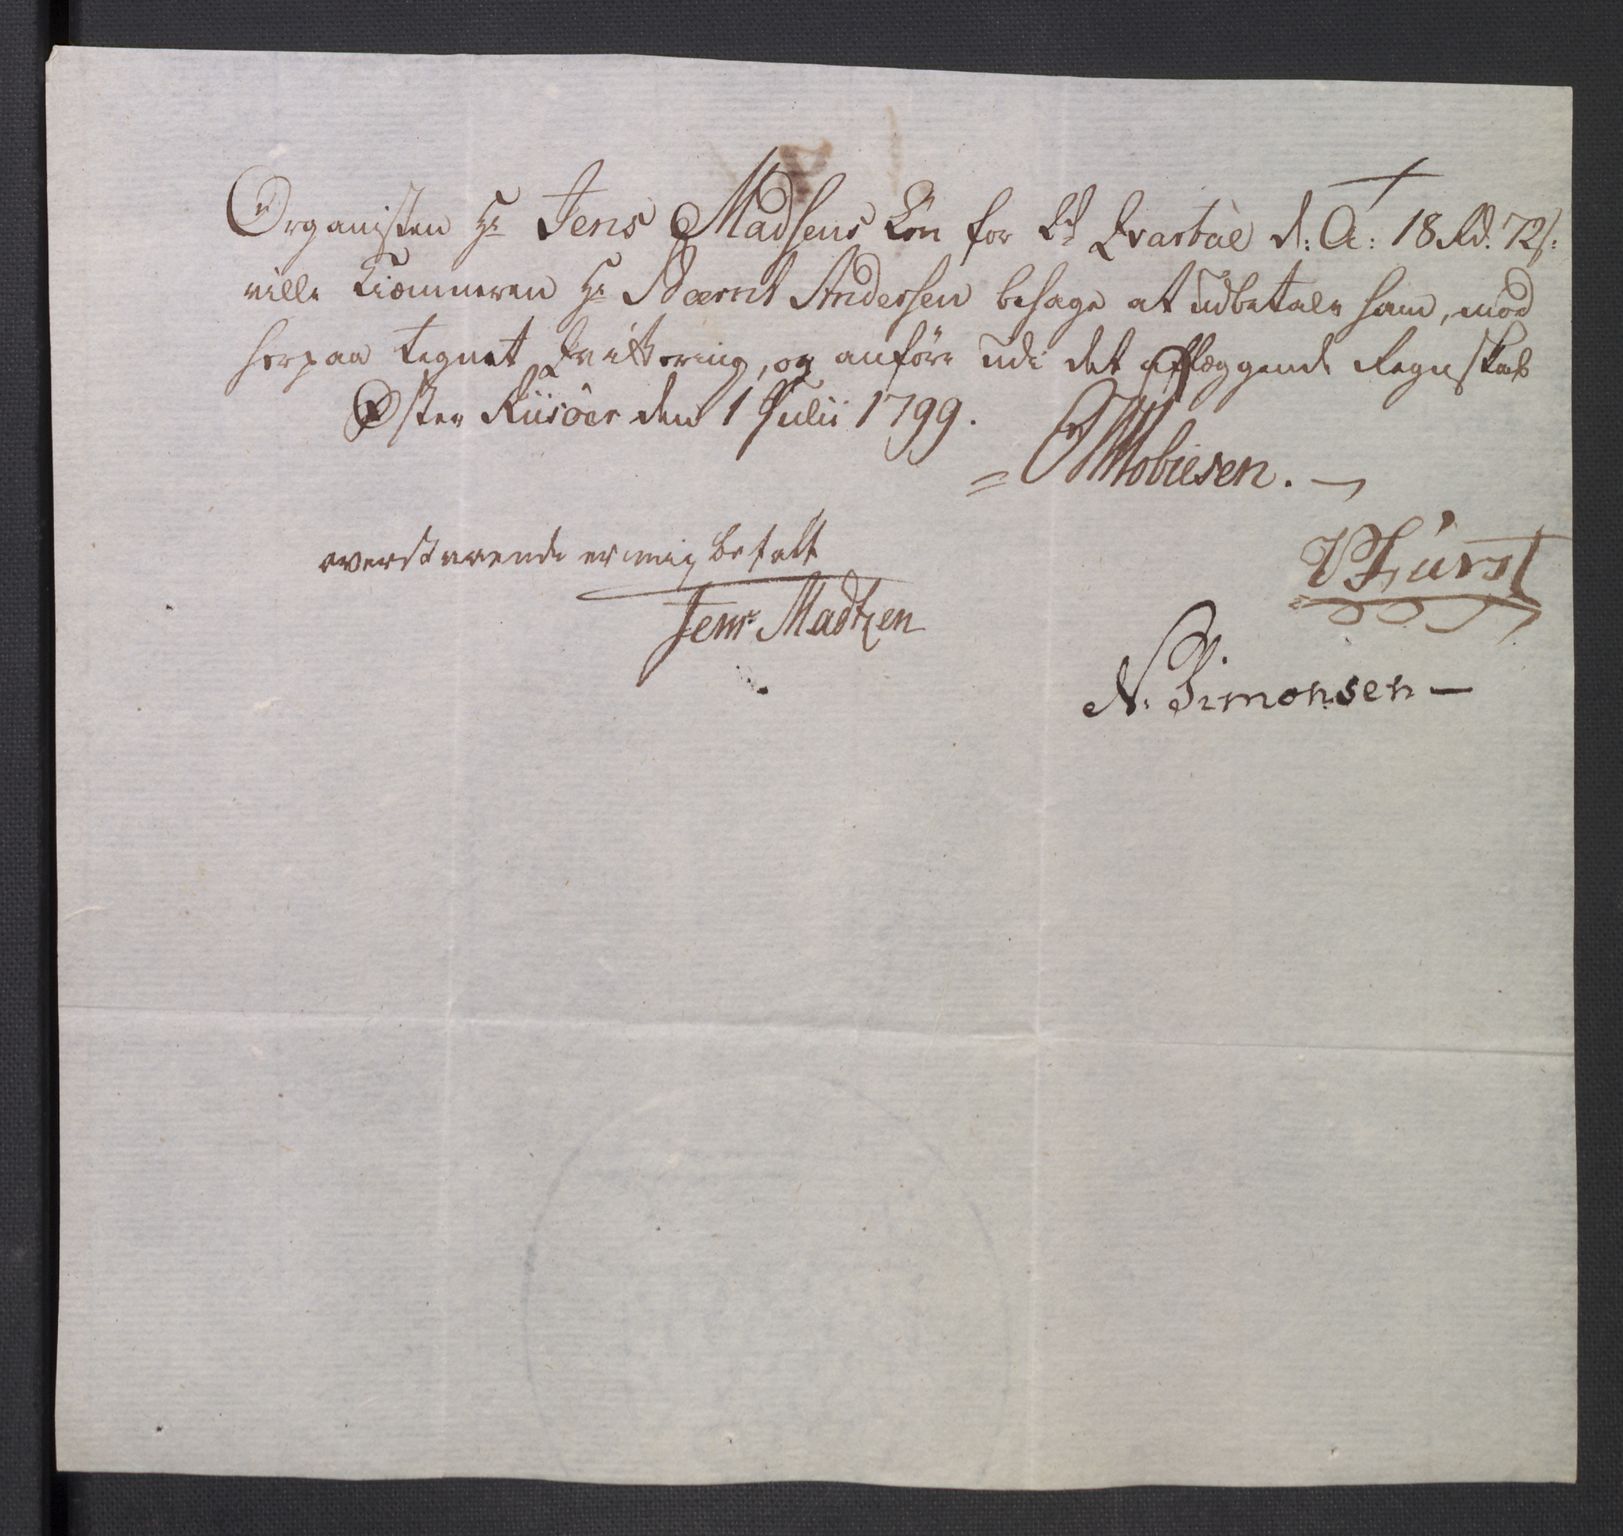 Organisten Hr Jens Madsens Lön for 2d Qvartal d: A: 18 Rd. 72 s:
ville Kiæmneren Hr Bærnt Andersen behage at udbetale ham, mod
herpaa tegnet Qvittering, og anföre udi det aflæggende Regnskab
Öster Riisöer den 1 Julii 1799.
Mobiesen.
overstaaende er mig betalt
Fürst
Jens Madtzen
N. Simonsen